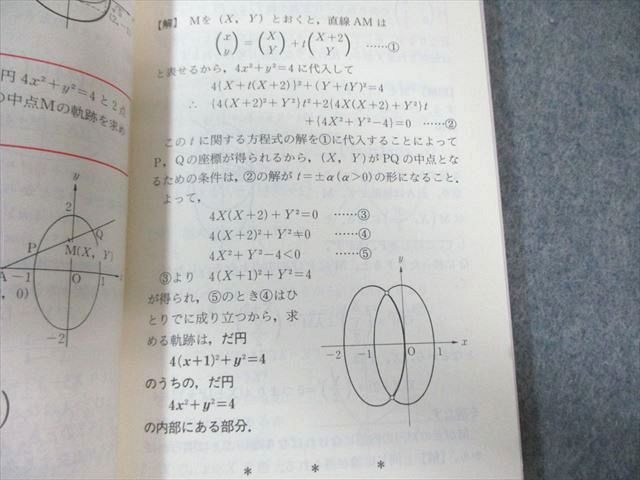 円 4x²+y²=4 と2点
の中点Mの軌跡を求め
y
2
Q
P
M(X, Y)
A -1
O
1
, 0)
-2
【解】 Mを (X, Y) とおくと，直線 AM は
(x y) = (X Y) + t(X+2 Y) ……①
と表せるから，4x²+y²=4 に代入して
4{X+t(X+2)}²+(Y+tY)²=4
∴ {4(X+2)²+Y²}t²+2{4X(X+2)+Y²}t
+{4X²+Y²-4}=0 ……②
この t に関する方程式の解を①に代入することによって
P，Qの座標が得られるから，(X, Y)がPQの中点とな
るための条件は，②の解が t=±α(α>0) の形になること．
よって，
4X(X+2)+Y²=0 ……③
4(X+2)²+Y²≠0 ……④
4X²+Y²-4<0 ……⑤
③より 4(X+1)²+Y²=4
が得られ，⑤のとき④はひ
とりでに成り立つから，求
める軌跡は，だ円
4(x+1)²+y²=4
のうちの，だ円
4x²+y²=4
の内部にある部分．
y
-2
-1
O
1
x
* * *